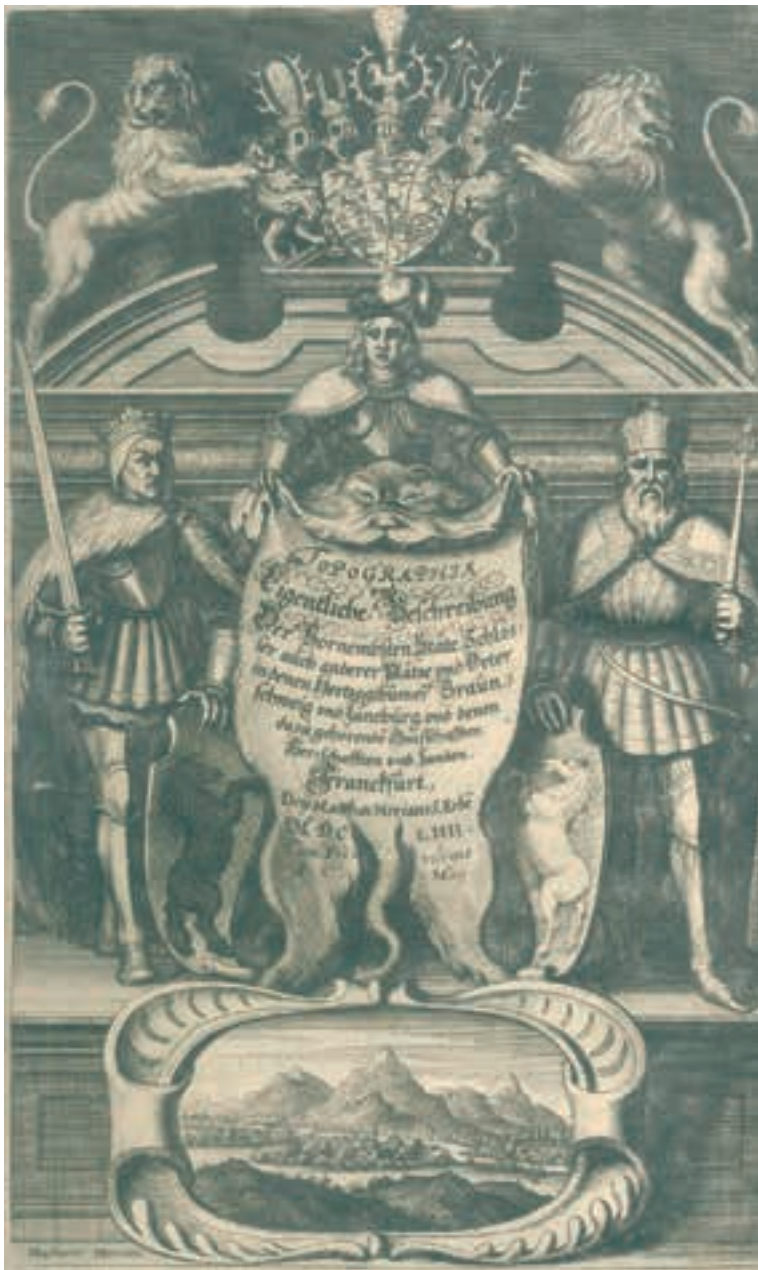 TOPOGRAPHIA
und
Eigentliche Beschreibung
Der Vornembsten Stäte, Schlös
ser auch anderer Plätze und Örter
in denen Hertzogthümer Braun,,
schweig und Lüneburg, und denen
dazu gehörende Graffschafften
Herrschafften und Landen.
Franckfurt,
Bey Matth. Merians S. Erben
MDC LIIII.